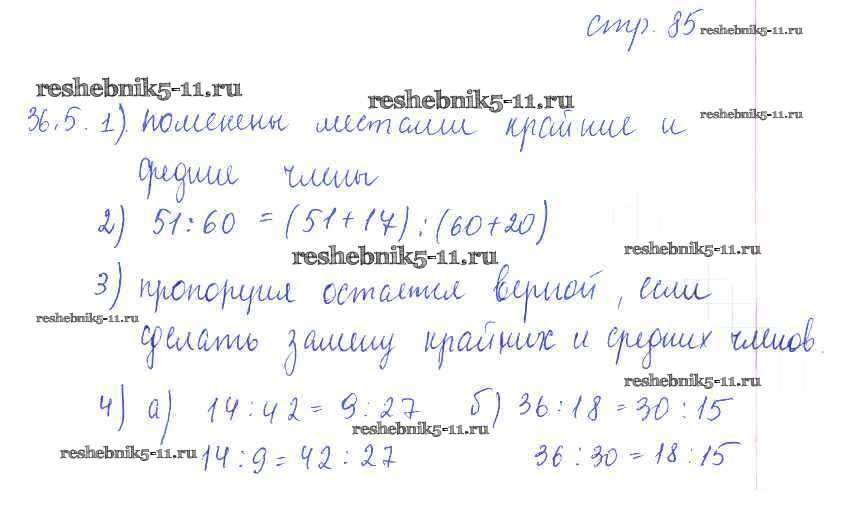 стр. 85 reshebnik5-11.ru
reshebnik5-11.ru
reshebnik5-11.ru
reshebnik5-11.ru
36.5. 1) поменены местами крайние и
средние члены
2) 51:60 = (51+17):(60+20)
reshebnik5-11.ru
reshebnik5-11.ru
3) пропорция остается верной, если
reshebnik5-11.ru
сделать замену крайних и средних членов.
reshebnik5-11.ru
4) а) 14:42=9:27 б) 36:18=30:15
reshebnik5-11.ru
reshebnik5-11.ru 14:9=42:27 36:30=18:15